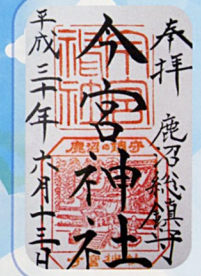 奉拝
鹿沼総鎮守
今宮神社
平成三十年六月十三日
鹿沼の鎮守